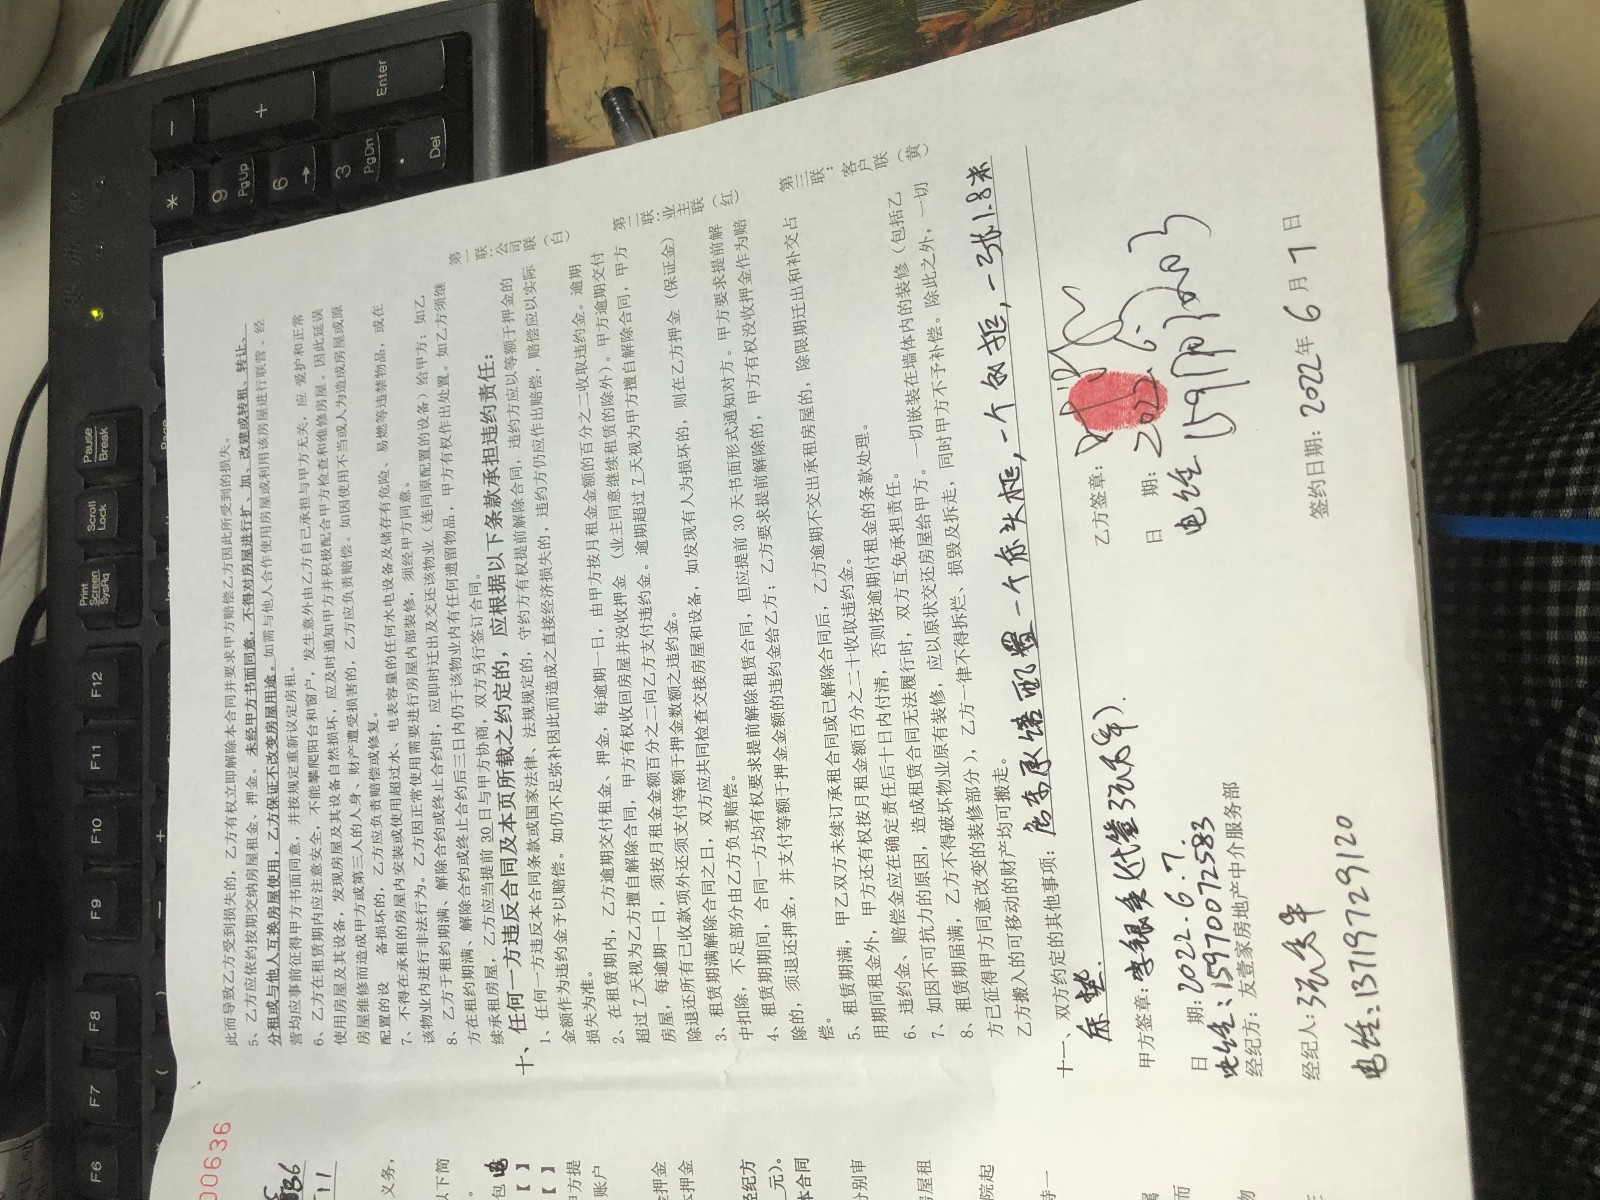 此而导致乙方受到损失的，乙方有权立即解除本合同并要求甲方赔偿乙方因此所受到的损失。
5、乙方应依约按期交纳房屋租金、押金。未经甲方书面同意，不得对房屋进行扩、加、改建或转租、转让、
分租或与他人互换房屋使用，乙方保证不改变房屋用途。如需与他人合作使用房屋或利用该房屋进行联营、经
营均应事前征得甲方书面同意，并按规定重新议定房租。
6、乙方在租赁期内应注意安全，不能攀爬阳台和窗户，发生意外由乙方自己承担与甲方无关，应 爱护和正常
使用房屋及其设备，发现房屋及其设备自然损坏，应及时通知甲方并积极配合甲方检查和维修房屋。因此延误
房屋维修而造成甲方或第三人的人身、财产遭受损害的，乙方应负责赔偿。如因使用不当或人为造成房屋或原
配置的设 备损坏的，乙方应负责赔偿或修复。
7、不得在承租的房屋内安装或使用超过水、电表容量的任何水电设备及储存有危险、易燃等违禁物品，或在
该物业内进行非法行为。乙方因正常使用需要进行房屋内部装修，须经甲方同意。
8、乙方于租约期满、解除合约或终止合约时，应即时迁出及交还该物业（连同原配置的设备）给甲方；如乙
方在租约期满、解除合约或终止合约后三日内仍于该物业内有任何遗留物品，甲方有权作出处置。如乙方须继
续承租房屋，乙方应当提前30日与甲方协商，双方另行签订合同。
十、任何一方违反合同及本页所载之约定的，应根据以下条款承担违约责任：
1、任何一方违反本合同条款或国家法律、法规规定的，守约方有权提前解除合同，违约方应以等额于押金的
金额作为违约金予以赔偿。如仍不足弥补因此而造成之直接经济损失的，违约方仍应作出赔偿，赔偿应以实际
损失为准。
2、在租赁期内，乙方逾期交付租金、押金，每逾期一日，由甲方按月租金金额的百分之二收取违约金。逾期
超过7天视为乙方擅自解除合同，甲方有权收回房屋并没收押金（业主同意继续租赁的除外）。甲方逾期交付
房屋，每逾期一日，须按月租金金额百分之二向乙方支付违约金。逾期超过7天视为甲方擅自解除合同，甲方
除退还所有已收款项外还须支付等额于押金数额之违约金。
3、租赁期满解除合同之日，双方应共同检查交接房屋和设备，如发现有人为损坏的，则在乙方押金（保证金）
中扣除，不足部分由乙方负责赔偿。
4、租赁期期间，合同一方均有权要求提前解除租赁合同，但应提前30天书面形式通知对方。甲方要求提前解
除的，须退还押金，并支付等额于押金金额的违约金给乙方；乙方要求提前解除的，甲方有权没收押金作为赔
偿。
5、租赁期满，甲乙双方未续订承租合同或已解除合同后，乙方逾期不交出承租房屋的，除限期迁出和补交占
用期间租金外，甲方还有权按月租金额百分之二十收取违约金。
6、违约金、赔偿金应在确定责任后十日内付清，否则按逾期付租金的条款处理。
7、如因不可抗力的原因，造成租赁合同无法履行时，双方互免承担责任。
8、租赁期届满，乙方不得破坏物业原有装修，应以原状交还房屋给甲方。一切嵌装在墙体内的装修（包括乙
方已征得甲方同意改变的装修部分），乙方一律不得拆烂、损毁及拆走，同时甲方不予补偿。除此之外，一切
乙方搬入的可移动的财产均可搬走。
十一、双方约定的其他事项：房东承诺配置一个床头柜，一个衣柜，一张1.8米
床垫.
甲方签章：李银英(代签 张庆军).
日 期：2022.6.7.
电话：15970072583
经纪方：友壹家房地产中介服务部
经纪人：张庆军
电话：13719729120
乙方签章：
日 期：2022.6.
电话
签约日期：2022年6月7日
第一联：公司联（白）
第二联：业主联（红）
第三联：客户联（黄）
00636
义务，
以下简
包电
【 】
【 】
方提
账户
金押金
本押金
经纪方
元）。
本合同
分别审
房屋租
院起
持一
属
而
物
Print Screen SysRq
Scroll Lock
Pause Break
F6
F7
F8
F9
F10
F11
F12
9 PgUp
6 →
3 PgDn
. Del
Enter
+
-
*